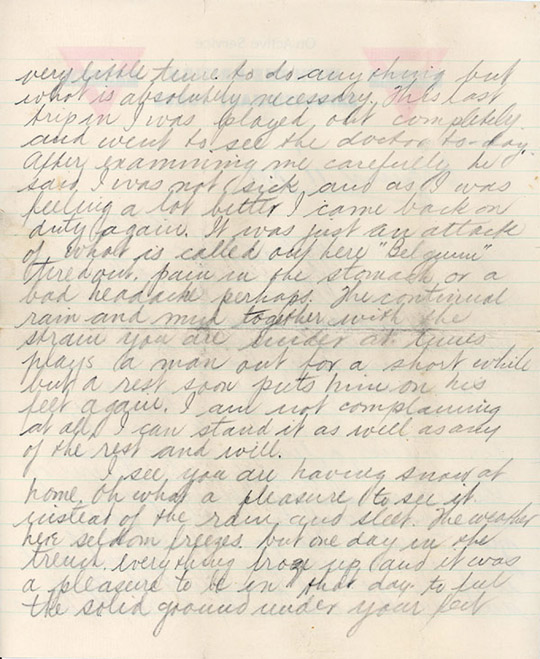 very little time to do anything but
what is absolutely necessary. This last
trip in I was played out completely
and went to see the doctor to-day.
After examining me carefully he
said I was not sick, and as I was
feeling a lot better I came back on
duty again. It was just an attack
of what is called out here "Belgium"
tired out, pain in the stomach or a
bad headache perhaps. The continual
rain and mud together with the
strain you are under at times
plays a man out for a short while
but a rest soon puts him on his
feet again. I am not complaining
at all, I can stand it as well as any
of the rest and will.
I see you are having snow at
home. Oh what a pleasure to see it
instead of the rain and sleet. The weather
here seldom freezes. but one day in the
trench everything froze up and it was
a pleasure to be in that day to feel
the solid ground under your feet